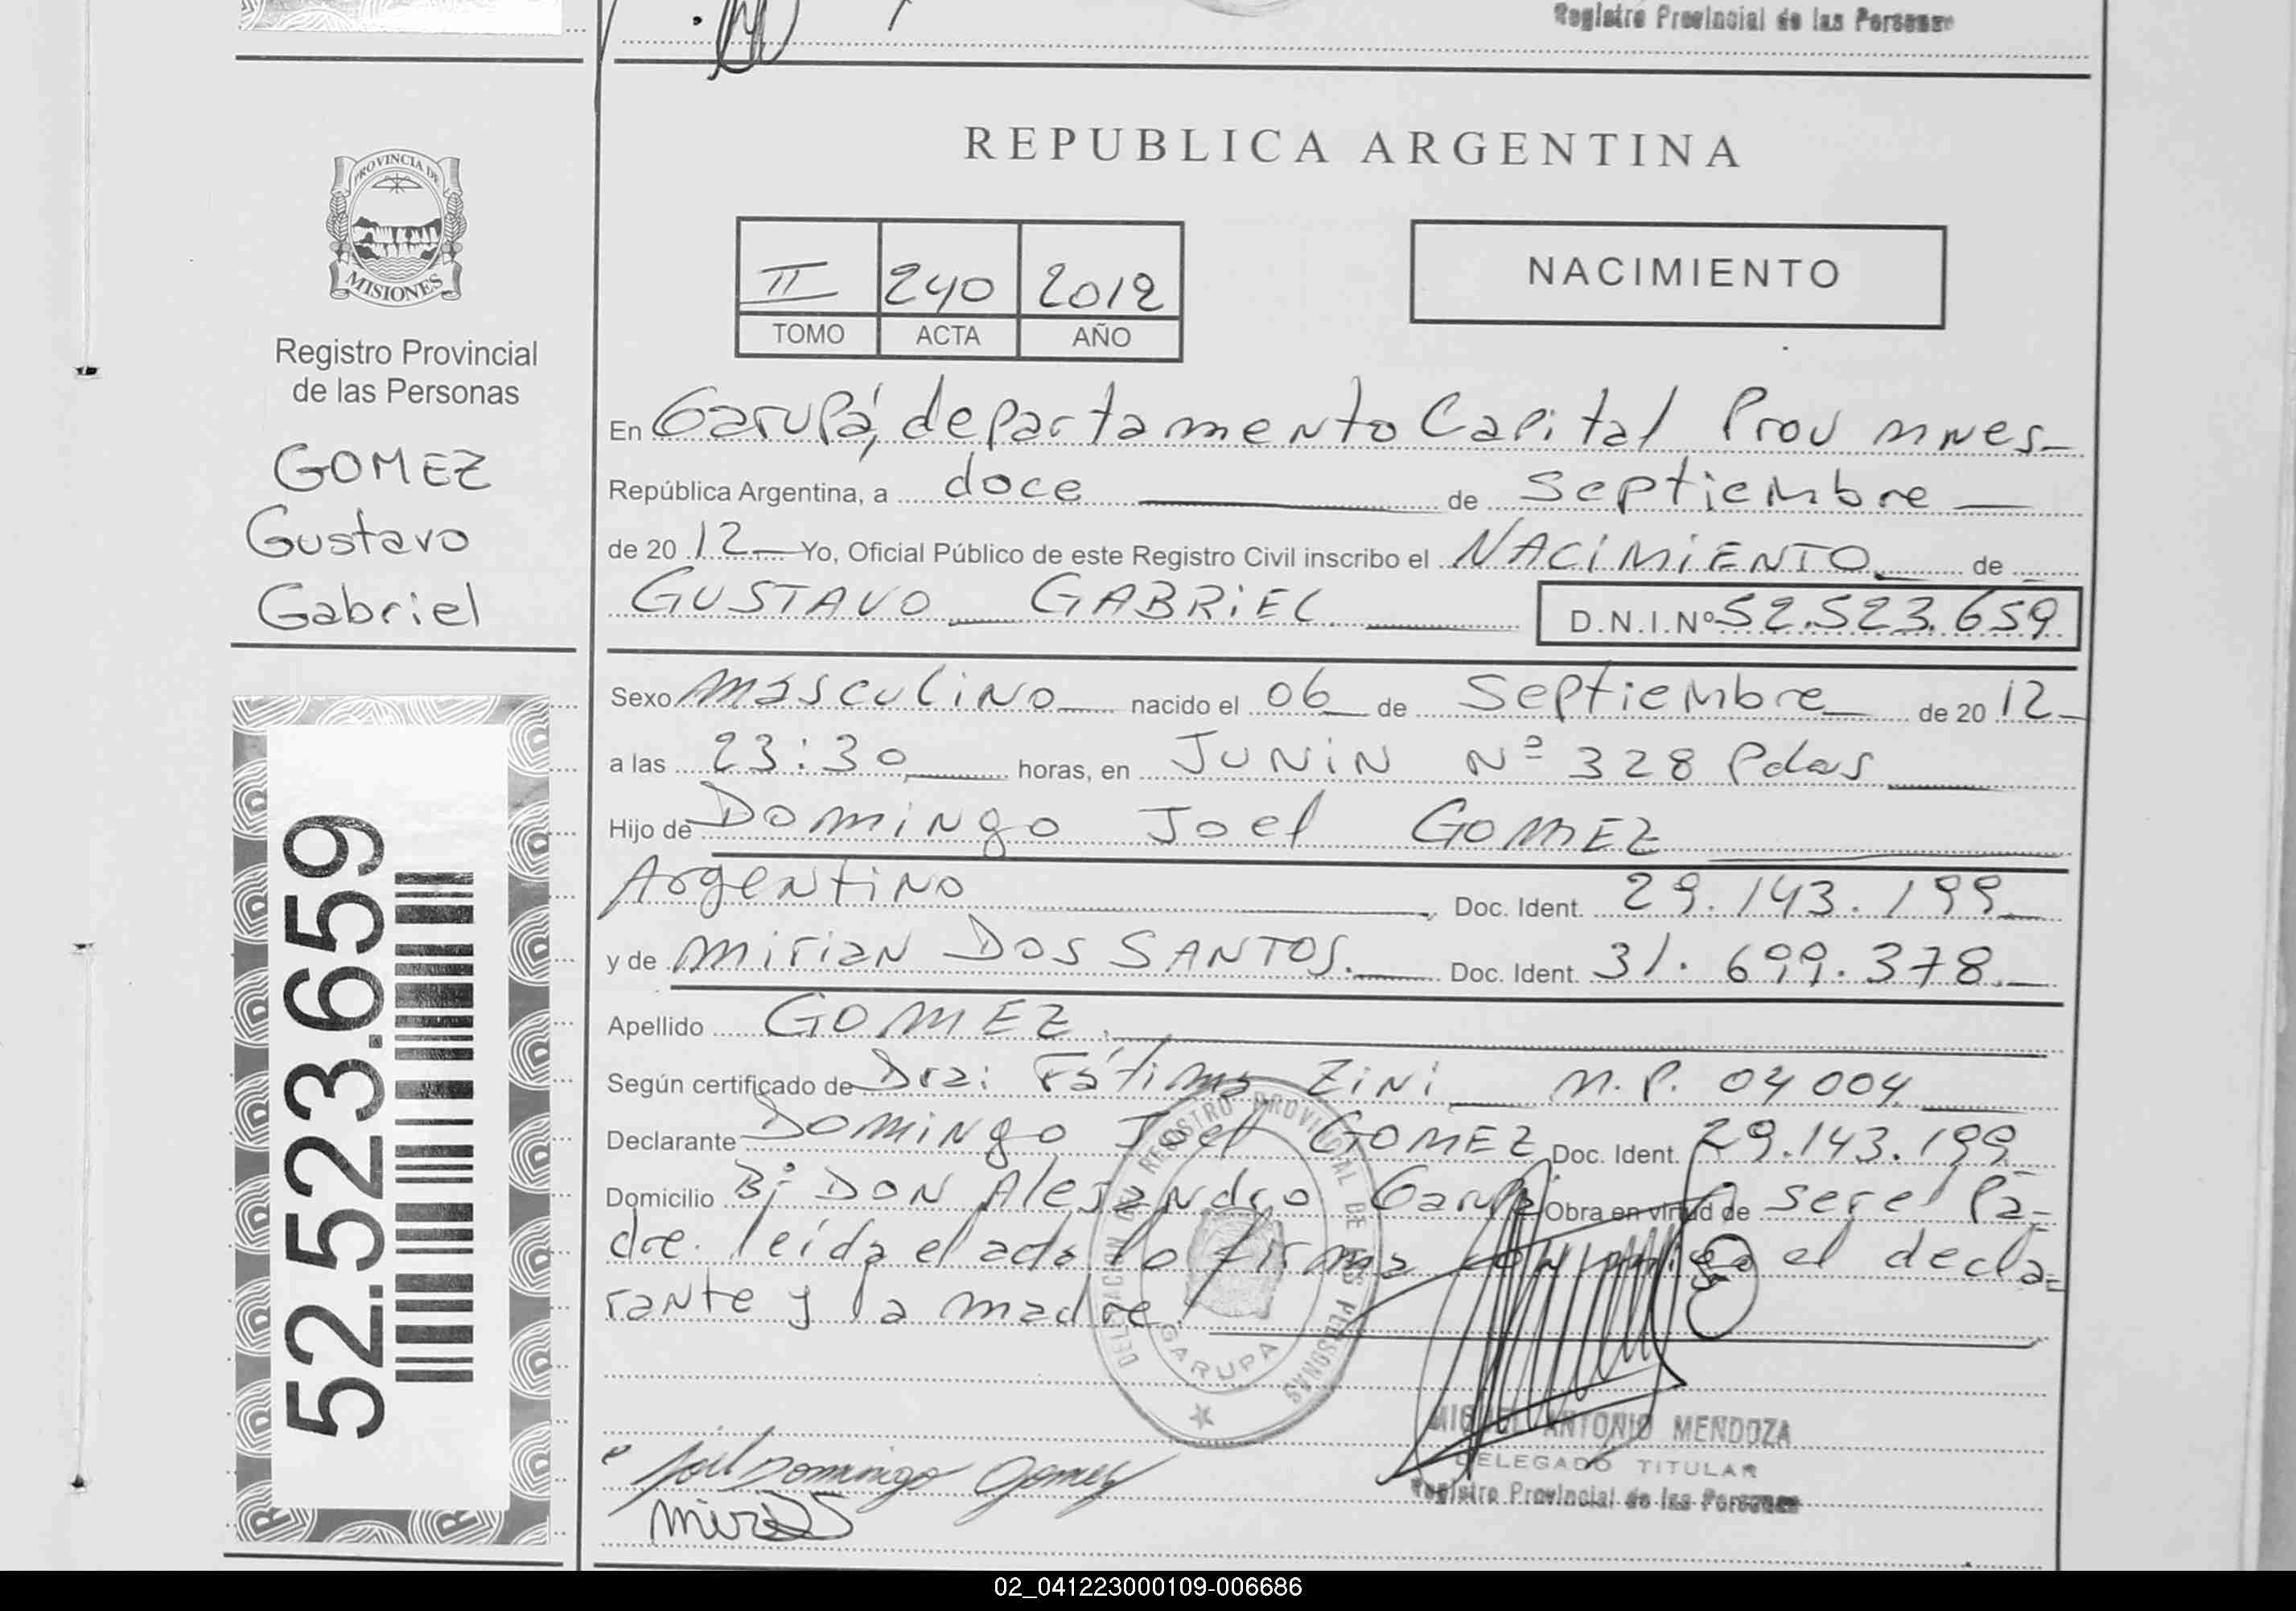 Registro Provincial de las Personas
REPUBLICA ARGENTINA
PROVINCIA DE
MISIONES
Registro Provincial
de las Personas
GOMEZ
Gustavo
Gabriel
52.523.659
II 240 2012
TOMO ACTA AÑO
NACIMIENTO
En Garupá, departamento Capital Prov mnes
República Argentina, a doce de Septiembre
de 2012 Yo, Oficial Público de este Registro Civil inscribo el NACIMIENTO de
GUSTAVO GABRIEL D.N.I.Nº 52.523.659
Sexo masculino nacido el 06 de Septiembre de 2012
a las 23:30 horas, en JUNIN Nº 328 Pdas
Hijo de Domingo Joel GOMEZ
Argentino Doc. Ident. 29.143.199
y de mirian DOS SANTOS. Doc. Ident. 31.699.378.
Apellido GOMEZ.
Según certificado de Dra: Fátima Zini M.P. 04004
Declarante Domingo Joel GOMEZ Doc. Ident. 29.143.199
Domicilio B: DON Alejandro Garupá Obra en virtud de ser el Pa-
dre. leída el acta lo firma conmigo el decla-
rante y la madre.
DELEGACION DEL REGISTRO PROVINCIAL DE LAS PERSONAS
GARUPA
MIGUEL ANTONIO MENDOZA
DELEGADO TITULAR
Registro Provincial de las Personas
Joel Domingo Gomez
02_041223000109-006686